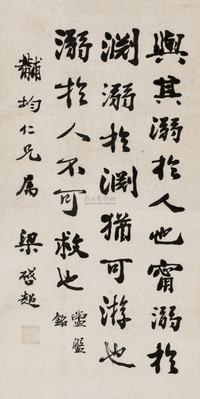 與其溺於人也甯溺於
淵溺於淵猶可游也
溺於人不可救也
盥盤銘
黼均仁兄属
梁啓超